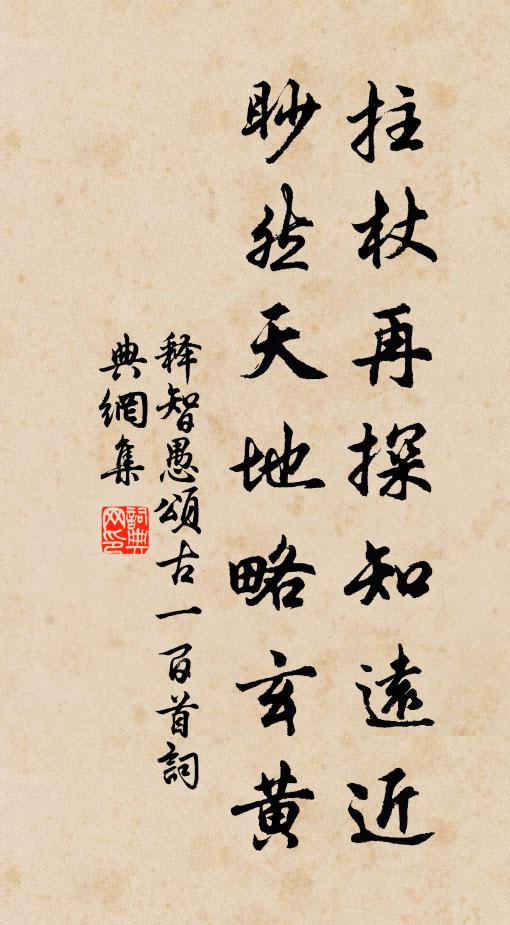 拄杖再探知遠近
眇然天地略玄黃
释智愚頌古一百首詞
典網集
詞典
网印